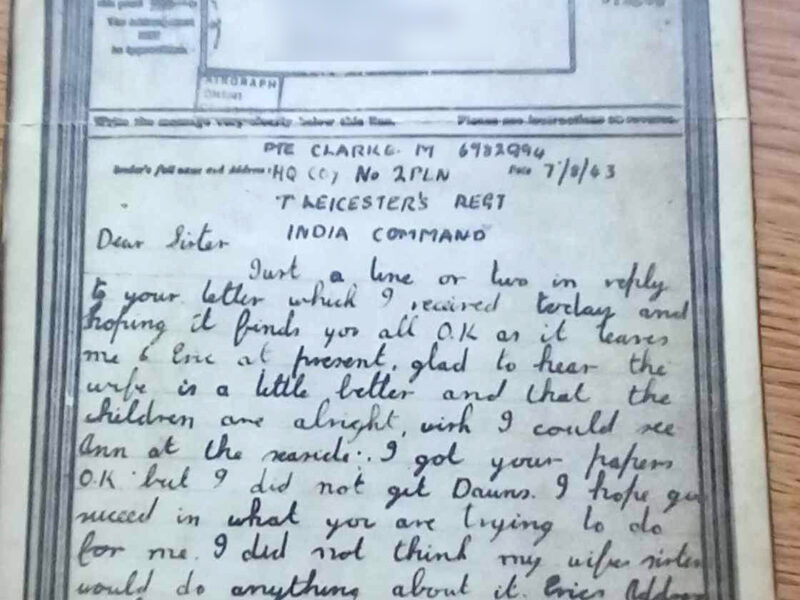 The address must
NOT
be
AIRGRAPH
Write the message very clearly below this line. Please see instructions on reverse.
PTE CLARKE. M 6982994
Sender's full name and Address: HQ (C) No 2 PLN Date 7/8/43
7 LEICESTER'S REGT
Dear Sister INDIA COMMAND
Just a line or two in reply
to your letter which I received today and
hoping it finds you all O.K as it leaves
me & Eric at present, glad to hear the
wife is a little better and that the
children are alright, wish I could see
Ann at the seaside. I got your papers
O.K but I did not get Dawns. I hope you
succeed in what you are trying to do
for me. I did not think my wifes sister
would do anything about it. Erics Address